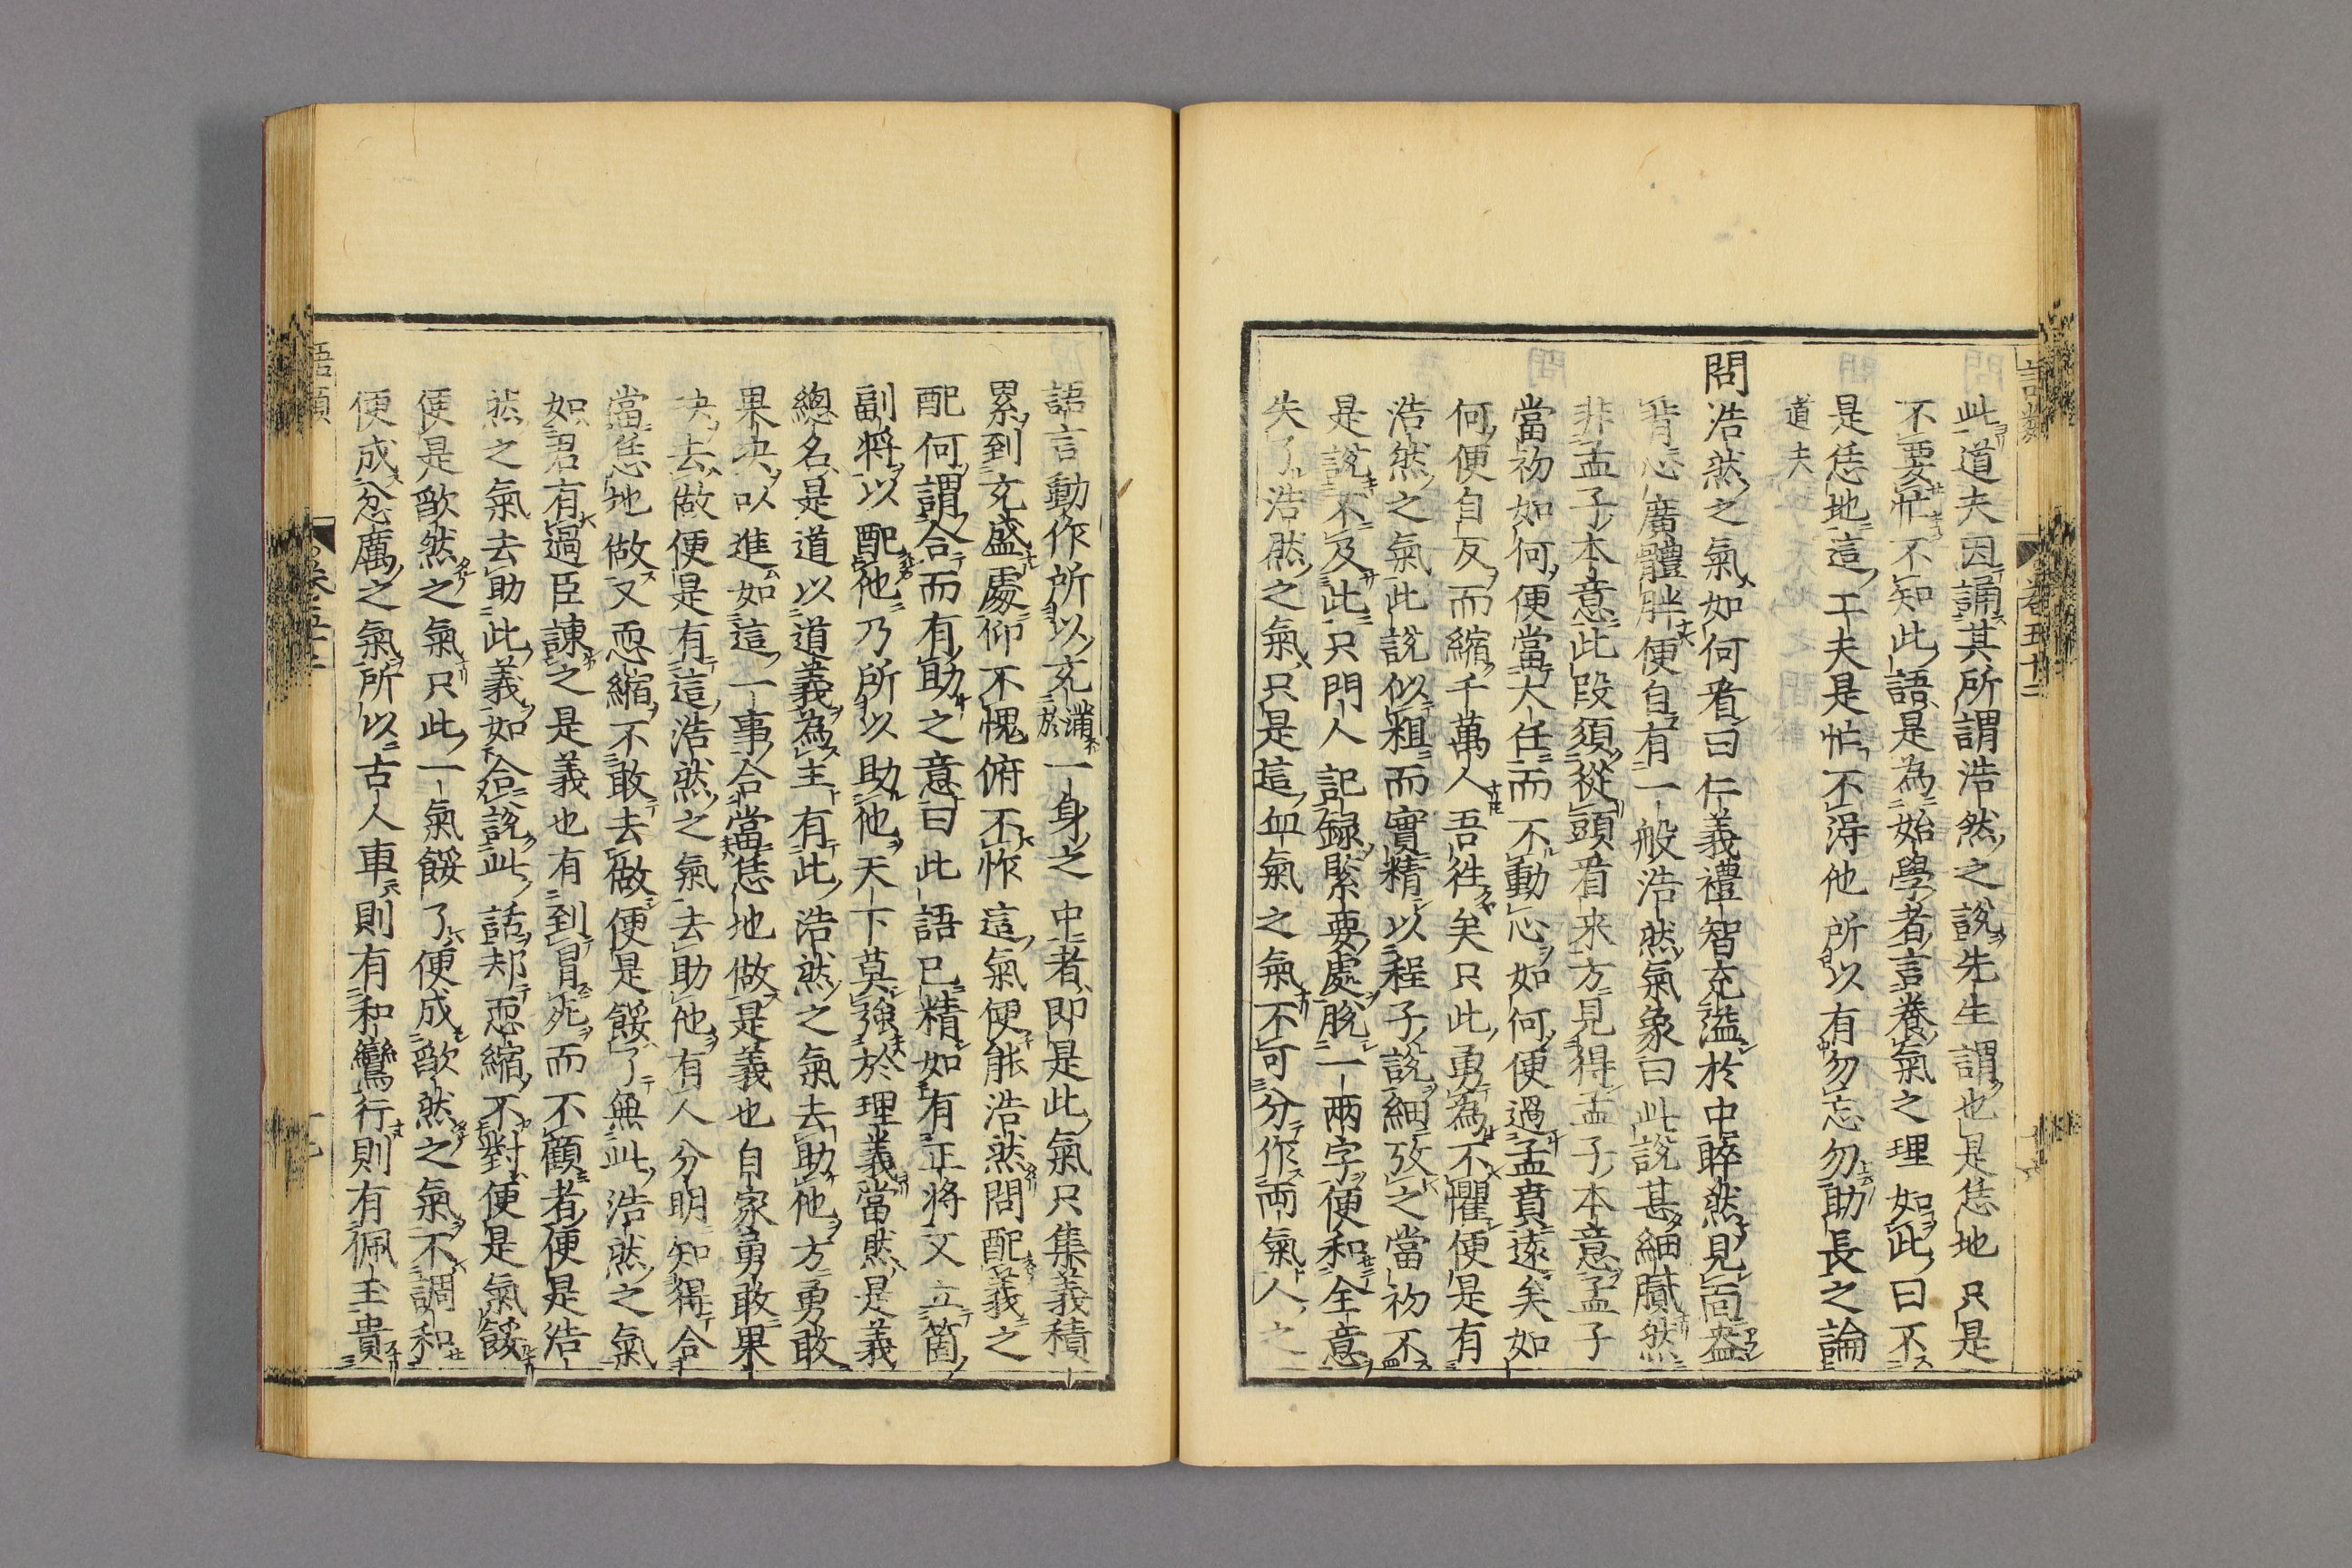 語類
卷五十二
此道夫因誦其所謂浩然之說先生謂也是恁地只是
不要忙不知此語是為始學者言養氣之理如此曰不
是恁地這工夫是怕不得他所以有勿忘勿助長之論
道夫
問浩然之氣如何看曰仁義禮智充溢於中睟然見面盎
背心廣體胖便自有一般浩然氣象曰此說甚細膩然
非孟子本意此段須從頭看来方見得孟子本意孟子
當初如何便當大任而不動心如何便過孟賁遠矣如
何便自反而縮千萬人吾徃矣只此勇為不懼便是有
浩然之氣此說似粗而實精以程子說細攷之當初不
是說不及此只門人記錄緊要處脫一兩字便和全意
失了浩然之氣只是這血氣之氣不可分作兩氣人之
語言動作所以充滿於一身之中者即是此氣只集義積
累到充盛處仰不愧俯不怍這氣便能浩然問配義之
配何謂合而有助之意曰此語已精如有正将又立箇
副将以配他乃所以助他天下莫強於理義當然是義
總名是道以道義為主有此浩然之氣去助他方勇敢
果决以進如這一事合當恁地做是義也自家勇敢果
决去做便是有這浩然之氣去助他有人分明知得合
當恁地做又恧縮不敢去做便是餒了無此浩然之氣
如君有過臣諫之是義也有到冒死而不顧者便是浩
然之氣去助此義如合說此話却恧縮不對便是氣餒
便是歉然之氣只此一氣餒了便成歉然之氣不調和
便成忿厲之氣所以古人車則有和鸞行則有佩玉貴
語類
卷五十二